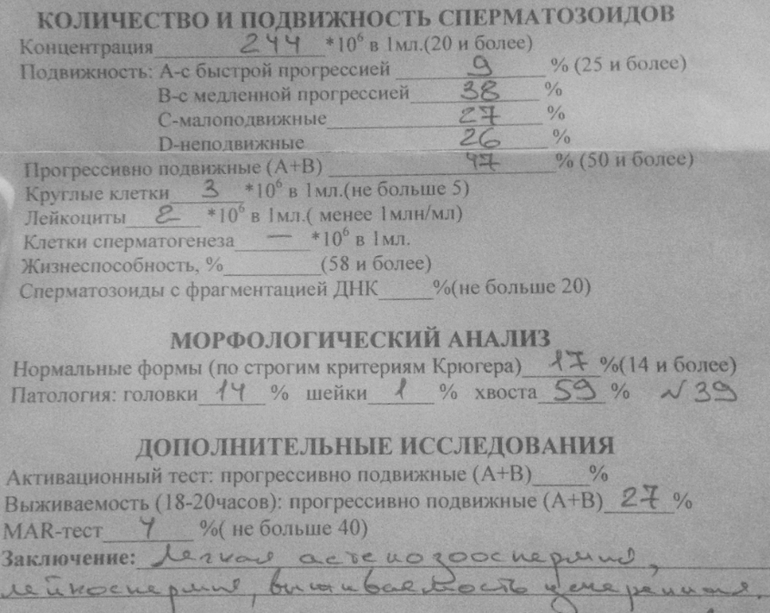 КОЛИЧЕСТВО И ПОДВИЖНОСТЬ СПЕРМАТОЗОИДОВ
Концентрация 244 *10⁶ в 1мл.(20 и более)
Подвижность: А-с быстрой прогрессией 9 % (25 и более)
В-с медленной прогрессией 38 %
С-малоподвижные 27 %
D-неподвижные 26 %
Прогрессивно подвижные (А+В) 47 % (50 и более)
Круглые клетки 3 *10⁶ в 1мл.(не больше 5)
Лейкоциты 2 *10⁶ в 1мл.( менее 1млн/мл)
Клетки сперматогенеза — *10⁶ в 1мл.
Жизнеспособность, % (58 и более)
Сперматозоиды с фрагментацией ДНК %(не больше 20)
МОРФОЛОГИЧЕСКИЙ АНАЛИЗ
Нормальные формы (по строгим критериям Крюгера) 17 %(14 и более)
Патология: головки 14 % шейки 1 % хвоста 59 % N 39
ДОПОЛНИТЕЛЬНЫЕ ИССЛЕДОВАНИЯ
Активационный тест: прогрессивно подвижные (А+В) %
Выживаемость (18-20часов): прогрессивно подвижные (А+В) 27 %
MAR-тест %( не больше 40)
Заключение: Легкая астенозооспермия,
лейкоспермия, выживаемость умеренная.